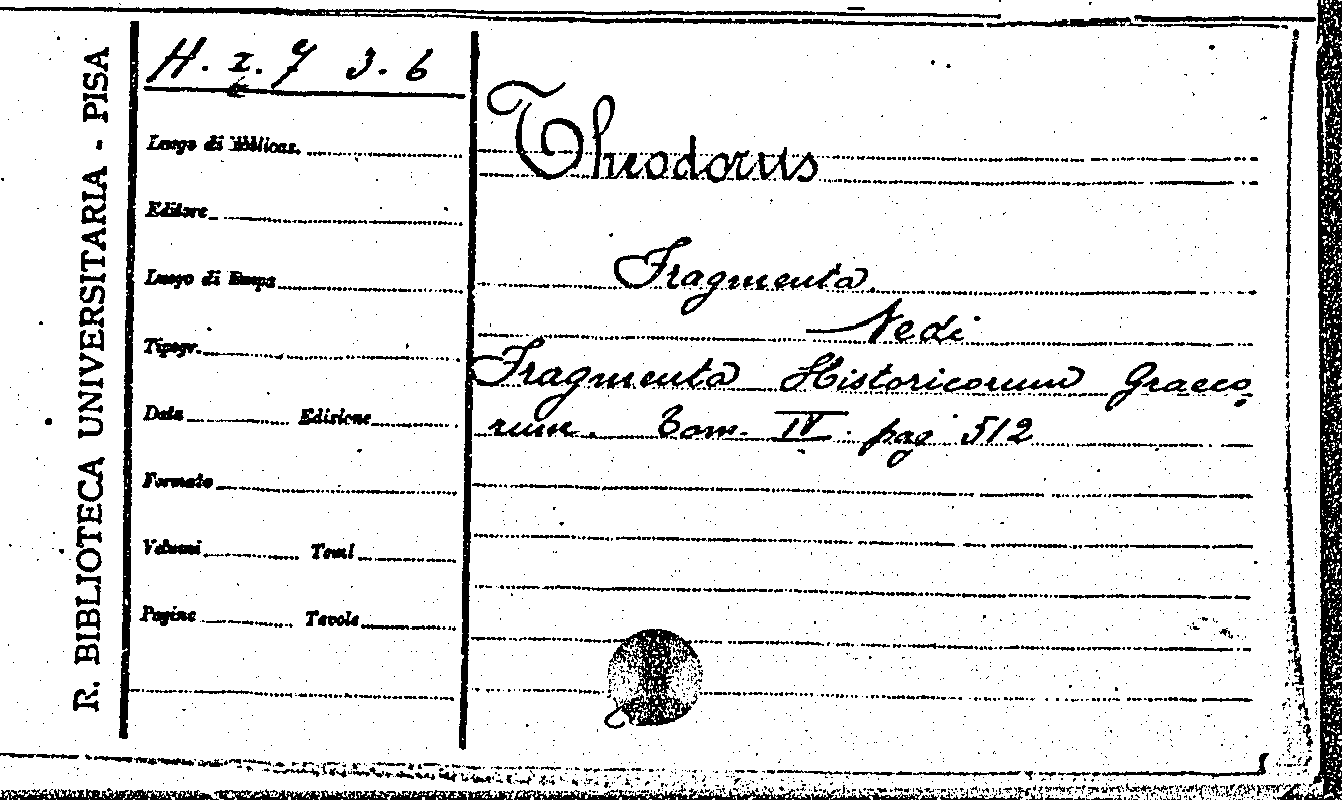 R. BIBLIOTECA UNIVERSITARIA - PISA
H. z. 7 3. 6
Luogo di Pubblicaz.
Editore
Luogo di Stampa
Tipogr.
Data Edizione
Formato
Volumi Tomi
Pagine Tavole
Theodorus
Fragmenta.
Vedi
Fragmenta Historicorum Graeco
rum. Tom. IV. pag 512